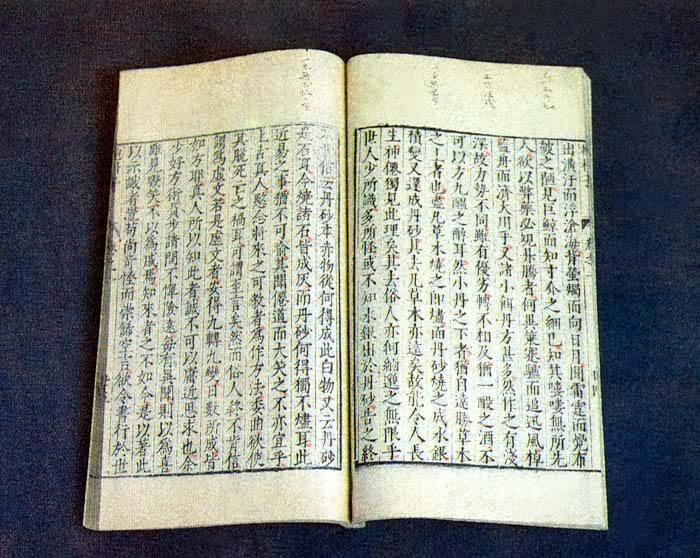 出潢汙而浮滄海背螢燭而向日月聞雷霆而覺布
鼓之陋見巨鯨而知寸介之細也知其嘍嘍無所先
入欲以弊藥必規昇騰者何異策蹇驢而追迅風棹
藍舟而濟大川乎又諸小餌丹方甚多然作之有淺
深故力勢不同雖有優劣轉不相及猶一酘之酒不
可以方九醞之醇耳然小丹之下者猶自遠勝草木
之上者也凡草木燒之即燼而丹砂燒之成水銀
積變又還成丹砂其去凡草木亦遠矣故能令人長
生神僊獨見此理矣其去俗人亦何緬邈之無限乎
世人少所識多所怪或不知水銀出於丹砂告之終
不肯信云丹砂本赤物從何得成此白物又云丹砂
是石耳今燒諸石皆成灰而丹砂何得獨不爾耳此
近易之事猶不可喻其聞僊道而大笑之不亦宜乎
上古真人愍念將來之可教者為作方法委曲欲使
其脫死亡之禍耳可謂至言矣然而俗人終不肯信
謂為虛文若是虛文者安得九轉九變日數所成皆
如方耶真人所以知此者誠不可以庸近思求也余
少好方術負步請問不憚險遠每有異聞則以為喜
雖見毀笑不以為戚焉知來者之不如今是以著此
以示識者豈苟尚奇怪而崇飾空言欲令書行於世